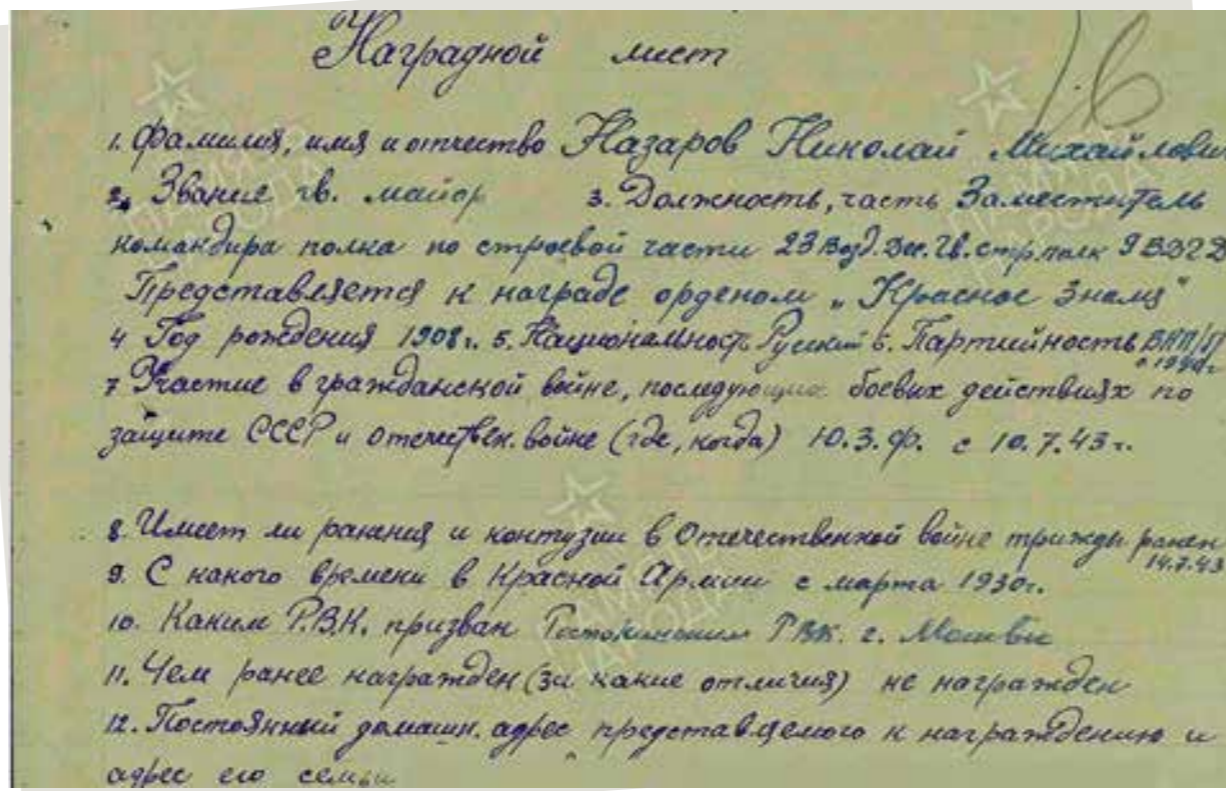 Наградной лист
1. Фамилия, имя и отчество Назаров Николай Михайлович
2. Звание гв. майор 3. Должность, часть Заместитель
командира полка по строевой части 23 Возд. Дес. Гв. стр. полк 9 ВДГД
Представляется к награде орденом "Красное Знамя"
4 Год рождения 1908 г. 5. Национальность Русский 6. Партийность ВКП/б/
с 1940 г.
7 Участие в гражданской войне, последующих боевых действиях по
защите СССР и отечествен. войне (где, когда) Ю.З.Ф. с 10.7.43 г.
8. Имеет ли ранения и контузии в Отечественной войне трижды ранен
14.7.43
9. С какого времени в Красной Армии с марта 1930 г.
10. Каким Р.В.К. призван РВК. г. Москвы
11. Чем ранее награжден (за какие отличия) не награжден
12. Постоянный домашн. адрес представляемого к награждению и
адрес его семьи
ПАМЯТЬ НАРОДА